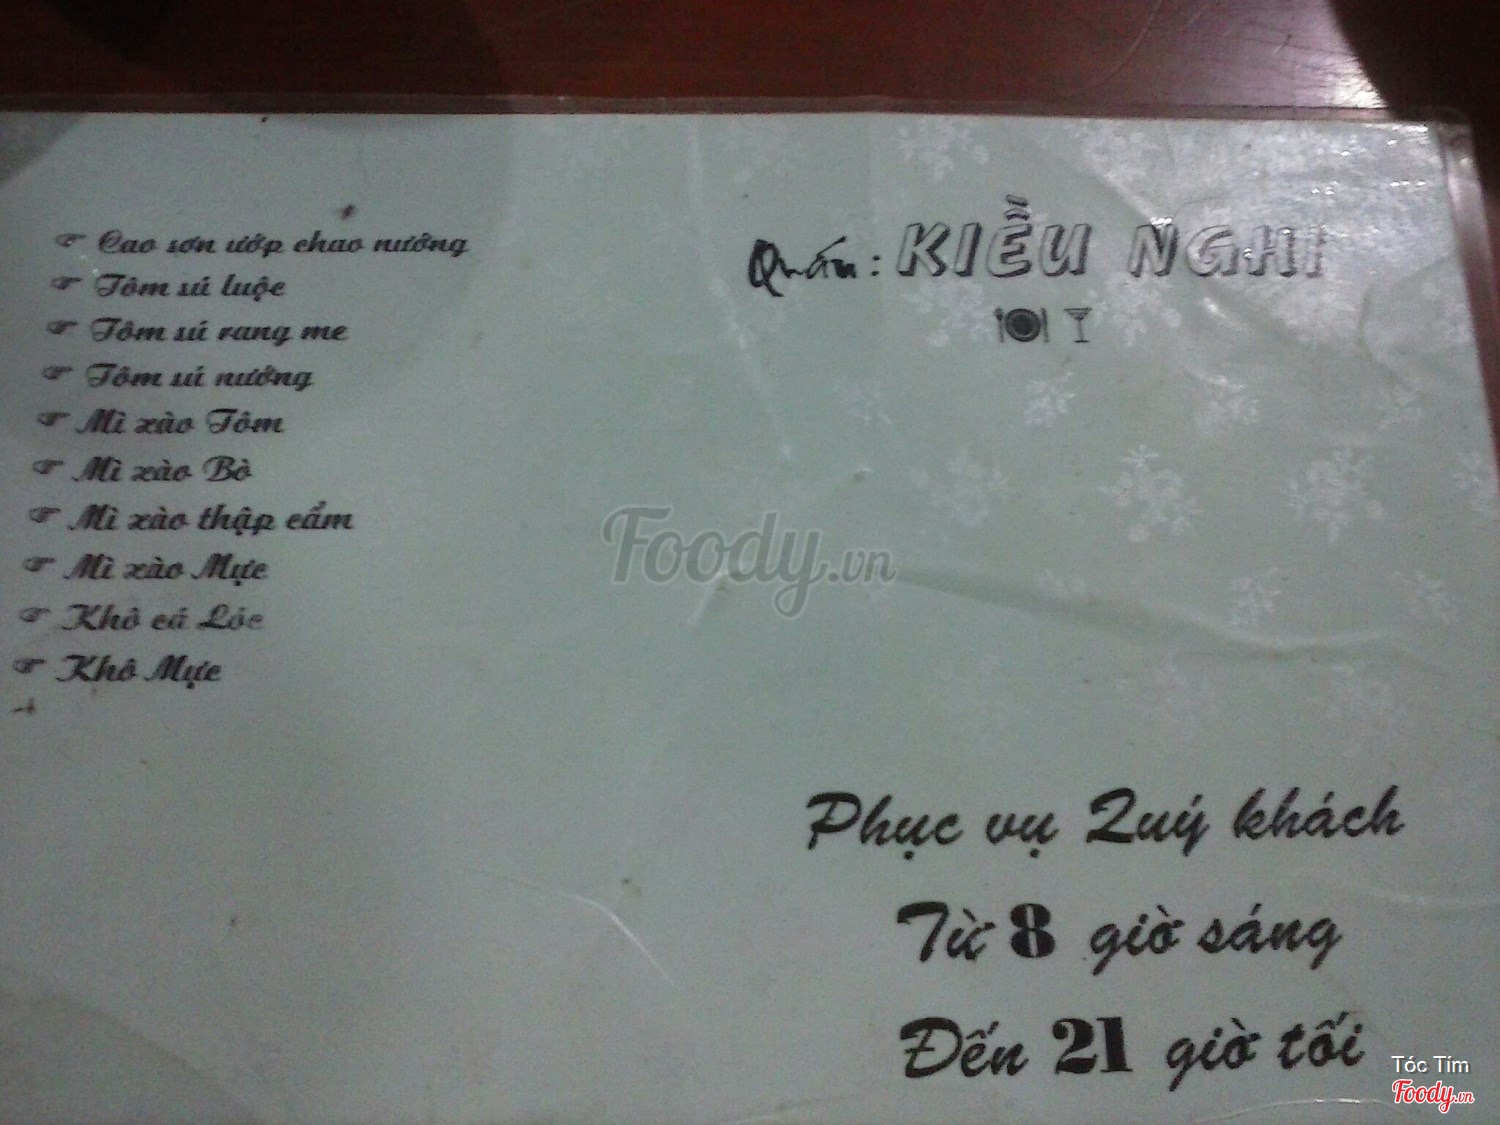 ☞ Cao sơn ướp chao nướng
☞ Tôm sú luộc
☞ Tôm sú rang me
☞ Tôm sú nướng
☞ Mì xào Tôm
☞ Mì xào Bò
☞ Mì xào thập cẩm
☞ Mì xào Mực
☞ Khô cá Lóc
☞ Khô Mực
Quán: KIỀU NGHI
Foody.vn
Phục vụ Quý khách
Từ 8 giờ sáng
Đến 21 giờ tối
Tóc Tím
Foody.vn